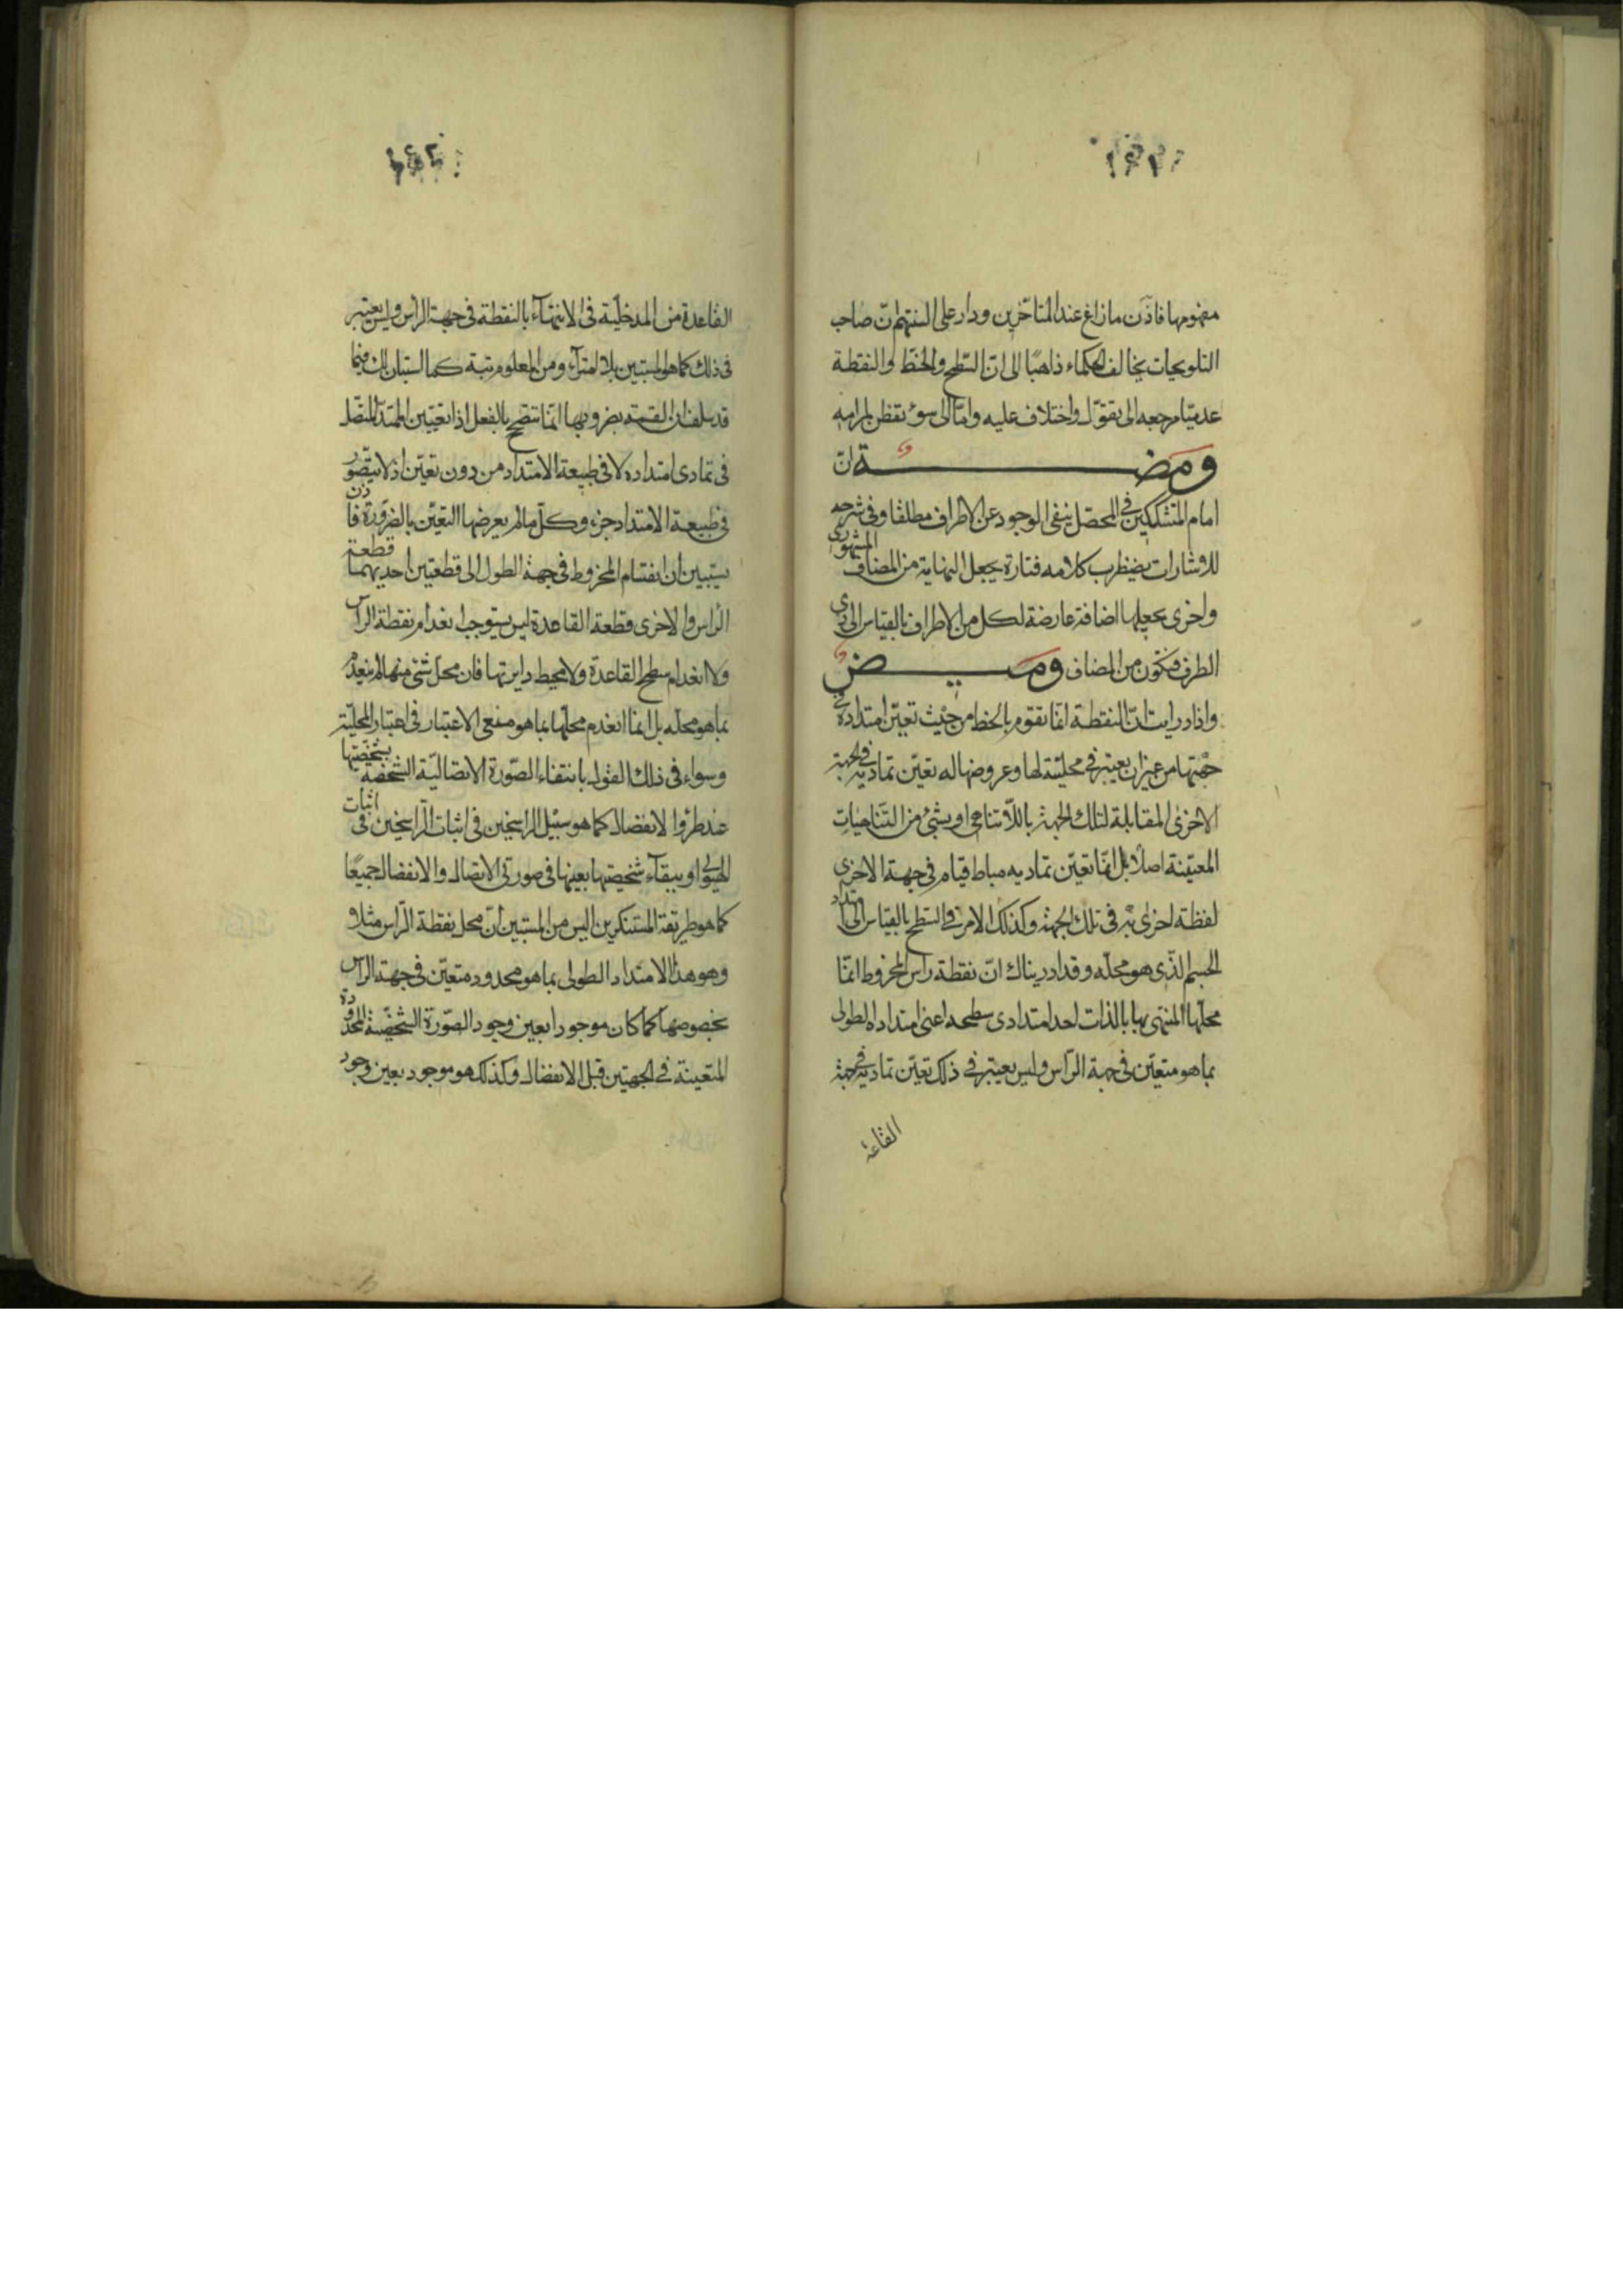 مفهومها فاذن ما زاغ عند المتاخرين ودار على السنتهم ان صاحب
التلويحات يخالف الحكماء ذاهبًا الى ان السطح والخط والنقطة
عدميّا مرجعه الى تقوّل واختلاف عليه وامّا الى سوء تفطن لمرامه
ومضة ان
امام المتشككين في المحصّل ينفى الوجود عن الاطراف مطلقا وفى شرحه
للاشارات يضطرب كلامه فتارة يجعل النهاية من المضاف المشهورى
واخرى يجعلها اضافة عارضة لكل من الاطراف بالقياس الى ذى
الطرف فتكون من المضاف وميض
واذا دريت انّ النقطة انّما تقوم بالخط من حيث تعيّن امتداده فى
جهتها من غير ان يعتبر فى محليّته لها وعروضها له تعيّن تماديه فى الجهة
الاخرى المقابلة لتلك الجهة باللاتناهى او بشئ من التناهيات
المعيّنة اصلًا بل انّما تعيّن تماديه مباط قيام فى جهة الاخرى
لفظة اخرى به فى تلك الجهة وكذلك الامر فى السطح بالقياس الى امتداد
الجسم الذّى هو محلّه وقد ادريناك انّ نقطة راس المخروط انمّا
محلّها المنتهى بها بالذات احد امتدادى سطحه اعنى امتداده الطولى
بما هو متعيّن فى جهة الرّاس وليس يعتبر فى ذلك تعيّن تماديه فى جهة
القاعدة
القاعدة من المدخليّة فى الانتهاء بالنقطة فى جهة الراس وليس يعتبر
فى ذلك كما هو المستبين بلا امتراء ومن المعلوم تبة كما استبان لك فيما
قد سلف ان القسمة بضروبها انّما تتضّح بالفعل اذا تعيّن الممتدّ المتّصل
فى تمادى امتداده لا فى طبيعة الامتداد من دون تعيّن اذ لا يتصّور
فى طبيعة الامتداد جزء وكلّ ما لم يعرضها التعيّن بالضّرورة فاذن
يستبين ان انقسام المخروط فى جهة الطول الى قطعتين احديهما قطعة
الرأس والاخرى قطعة القاعدة ليس يستوجب انعدام نقطة الراس
ولا انعدام سطح القاعدة ولا محيط دايرتها فان محلّ شئ منها لم ينعدم
بما هو محلّه بل انّما انعدم محلّها بما هو منعى الاعتبار فى اعتبار المحليّة
وسواء فى ذلك القول بانتفاء الصّورة الاتصاليّة الشخصّة بشخصيّتها
عند طرؤ الانفصال كما هو سبيل الراسخين فى اثبات الرّاسخين فى اثبات
الهيولى او ببقاء شخصيتها بعينها فى صورتى الاتصال والانفصال جميعًا
كما هو طريقة المستنكرين اليس من المستبين أنّ محل نقطة الرّاس مثلا و
وهو هذا الامتداد الطولى بما هو محدود متعيّن فى جهة الراس
بخصوصها كما كان موجودا بعين وجود الصّورة الشخصيّة المحدودة
المتعينة فى الجهتين قبل الانفصال وكذلك هو موجود بعين وجود